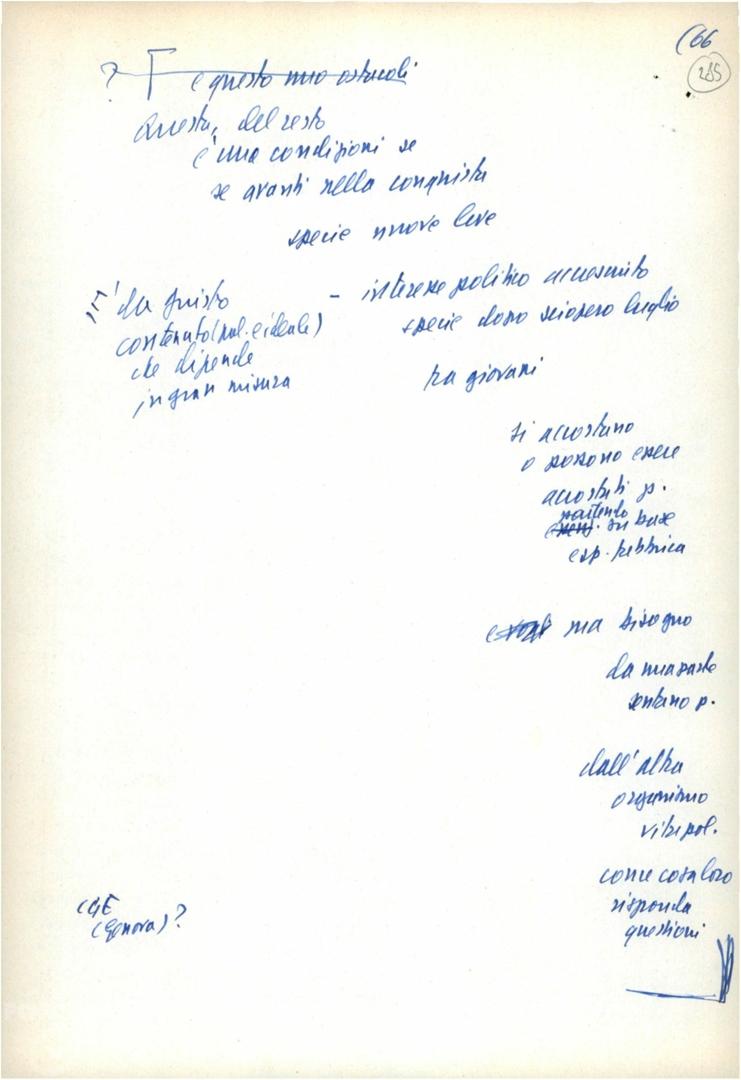 (66
285
? e questo mio ostacoli
Questa, del resto
è una condizioni se
se avanti nella conquista
specie nuove leve
E' da questo
contenuto (pol. e ideale)
che dipende
in gran misura
- interesse politico accresciuto
specie dopo sciopero luglio
tra giovani
si accostano
o possono essere
accostati p.
partendo
su base
esp. fabbrica
ma bisogno
da una parte
sentano p.
dall'altra
organismo
vita pol.
come cosa loro
risponda
questioni
CGE
(Genova)?